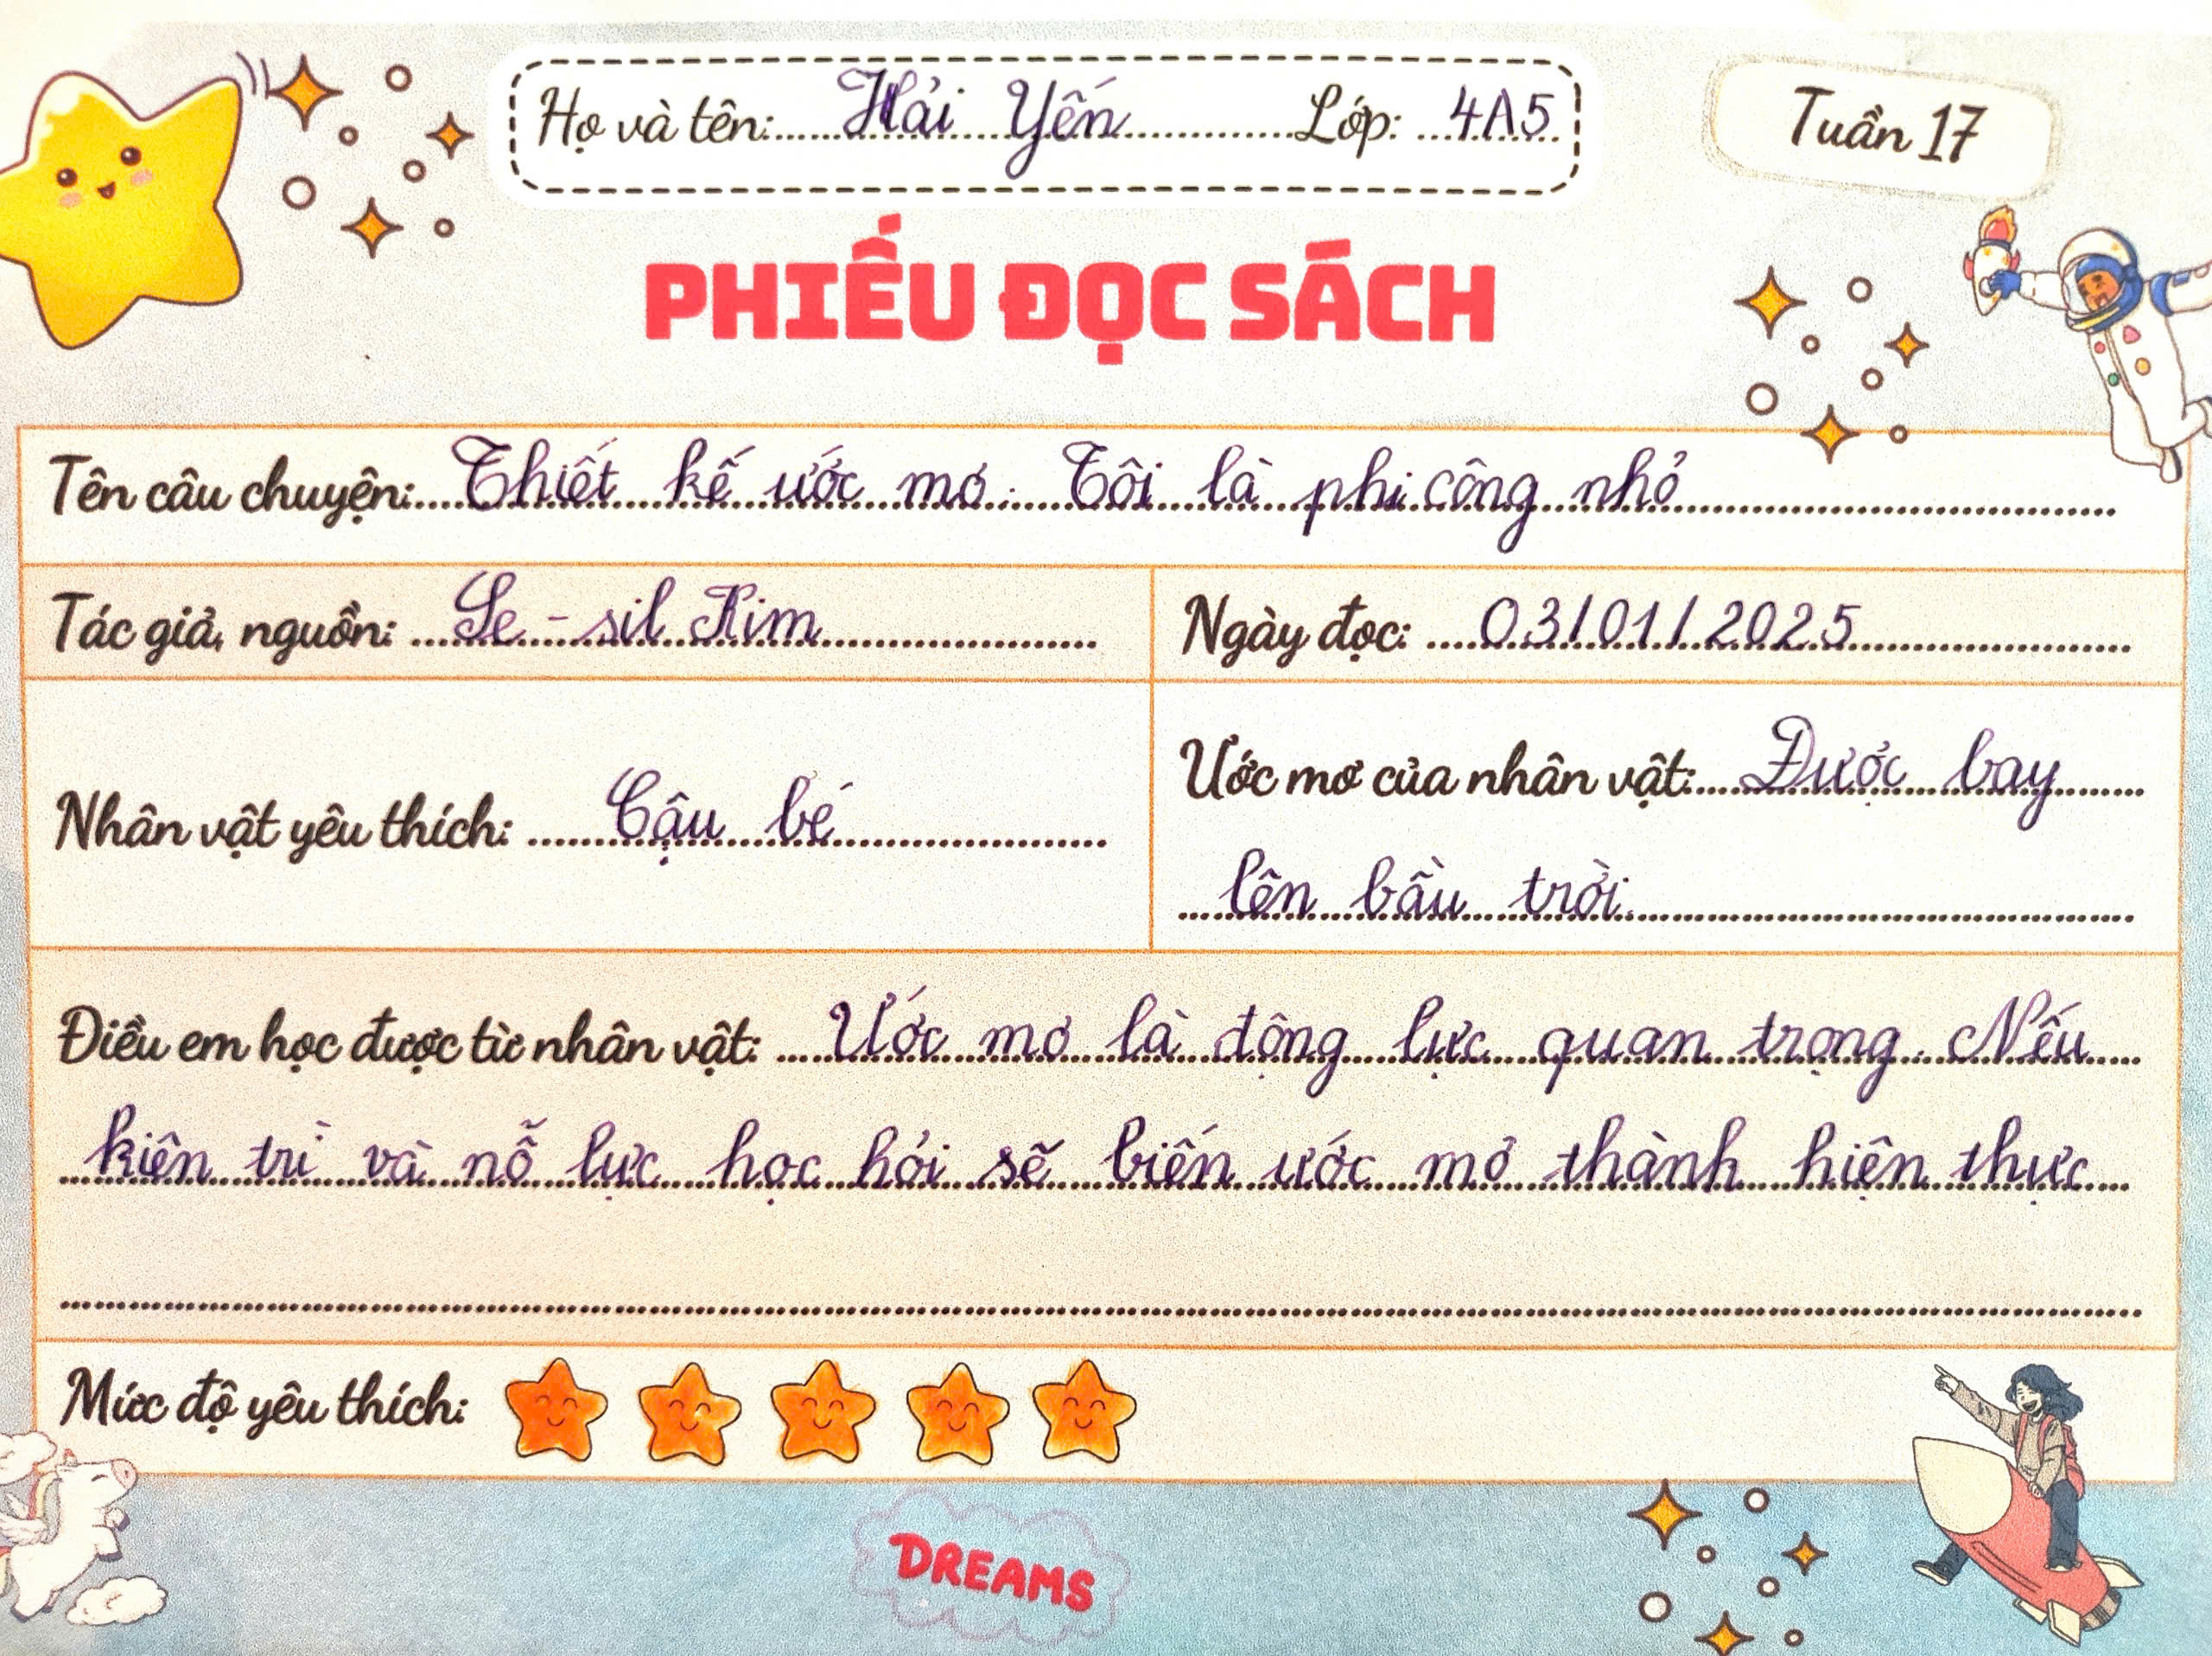 Họ và tên: Hải Yến Lớp: 4A5
Tuần 17
PHIẾU ĐỌC SÁCH
Tên câu chuyện: Thiết kế ước mơ. Tôi là phi công nhỏ
Tác giả, nguồn: Se - sil Kim
Ngày đọc: 03/01/2025
Nhân vật yêu thích: Cậu bé
Ước mơ của nhân vật: Được bay
lên bầu trời.
Điều em học được từ nhân vật: Ước mơ là động lực quan trọng. Nếu
kiên trì và nỗ lực học hỏi sẽ biến ước mơ thành hiện thực
Mức độ yêu thích:
DREAMS